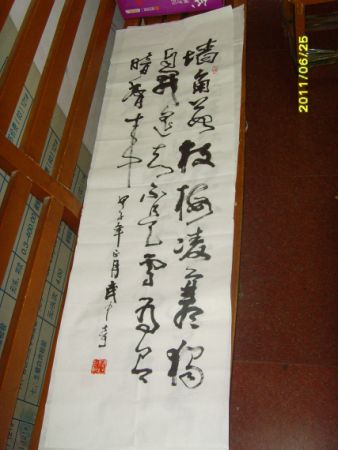 墙角数枝梅凌寒獨
自开遥知不是雪为有
暗香来
甲子年正月武中奇
2011/06/25